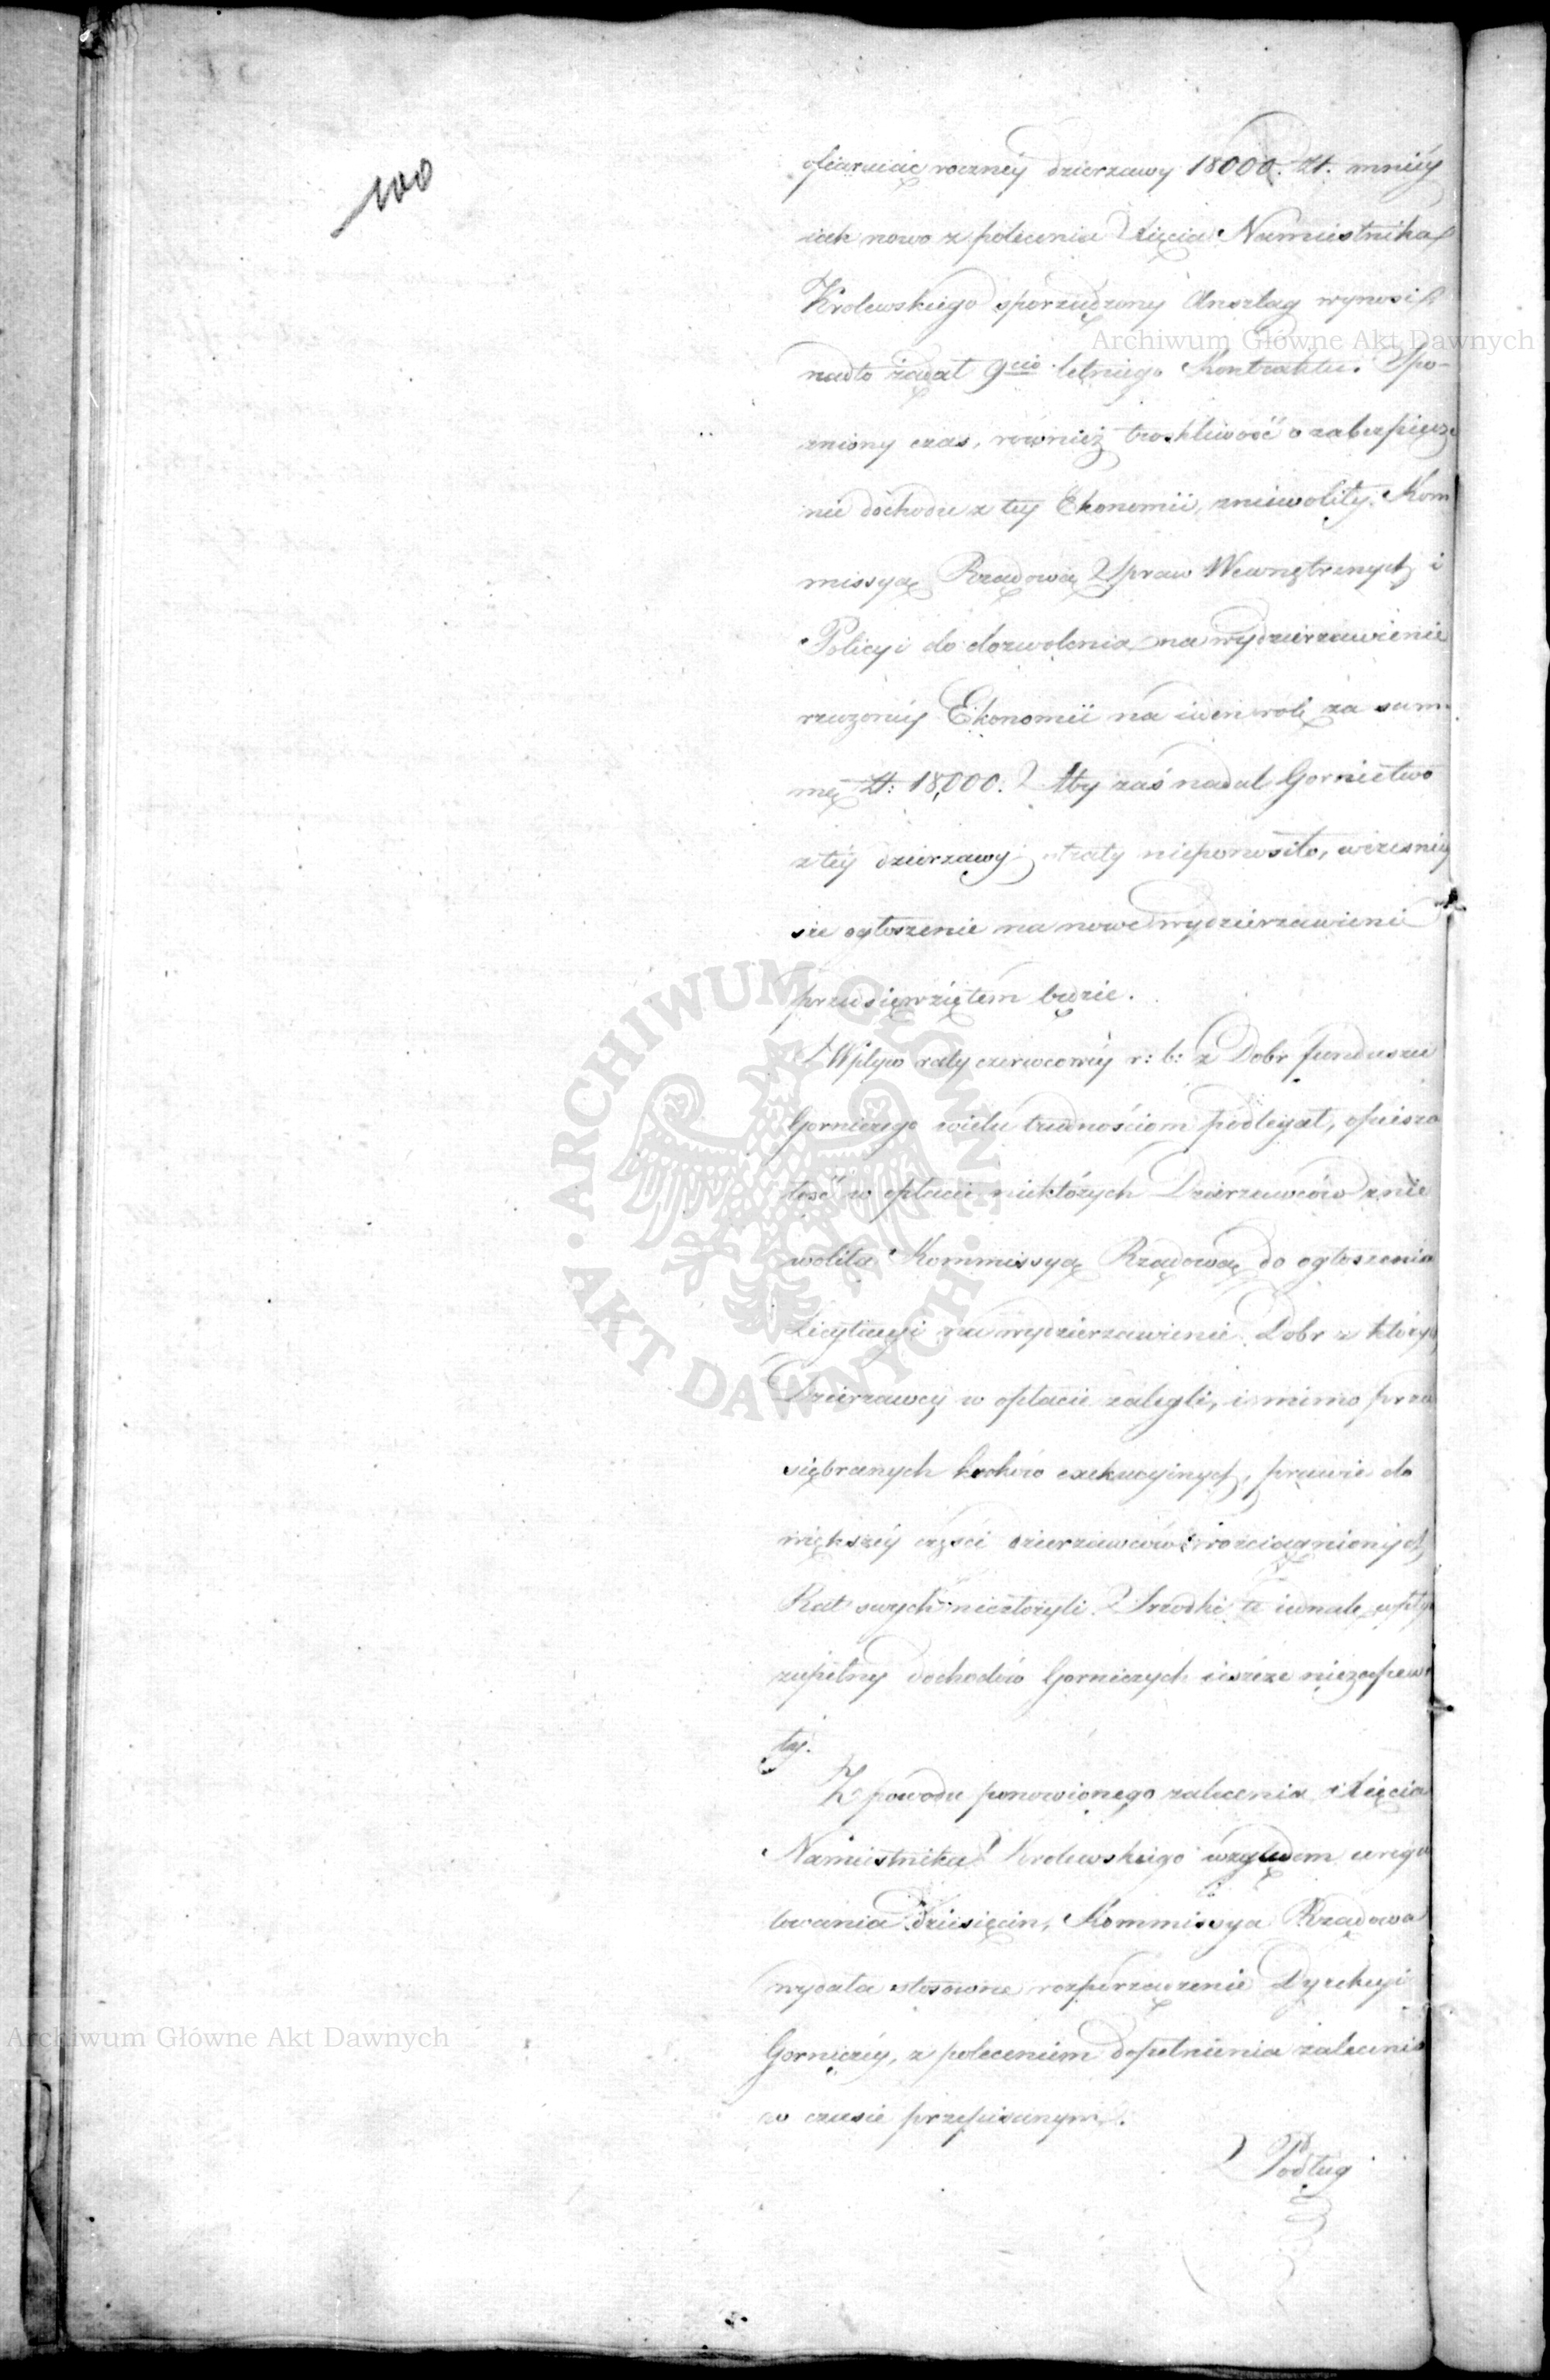 100
ofiaruiąc roczney dzierzawy 18000. Zł. mniéy
iak nowo z polecenia Xięcia Namiestnika
Krolewskiego sporządzony Anszlag wynosi,
nadto żądał 9cio letniego Kontraktu. Spo-
zniony czas, również troskliwość o zabezpiecze
nie dochodu z tey Ekonomii, zniewoliły Kom
missyą Rządową Spraw Wewnętrznych i
Policyi do dozwolenia na wydzierzawienie
rzeczoney Ekonomii na ieden rok za sum
mę Zł: 18,000. Aby zaś nadal Gornictwo
z téy dzierzawy straty nieponosiło, wczesniey
sze ogłoszenie na nowe wydzierzawienie
przedsięwziętem będzie.
Wpływ raty czerwcowéy r: b: z Dobr funduszu
Gorniczego wielu trudnościom podlegał, opiesza
łość w opłacie niektórych Dzierzawców znie
woliła Kommissyą Rządową do ogłoszenia
Licytacyi na wydzierzawienie Dobr z których
Dzierzawcy w opłacie zalegli, i mimo przed
siębranych kroków exekucyinych, prawie do
większéy części dzierzawców rozciągnionych
Rat swych niezłożyli. Srzodki te iednak wpływ
zupełny dochodów Gorniczych ieszcze niezapewni
ły.
Z powodu ponowionego zalecenia Xięcia
Namiestnika Krolewskiego względem uregu
lowania Dziesięcin, Kommissya Rządowa
wydała stosowne rozporządzenie Dyrekcyi
Gorniczéy, z poleceniem dopełnienia zalecenia
w czasie przepisanym.
Podług
Archiwum Główne Akt Dawnych
ARCHIWUM GŁÓWNE • AKT DAWNYCH •
Archiwum Główne Akt Dawnych